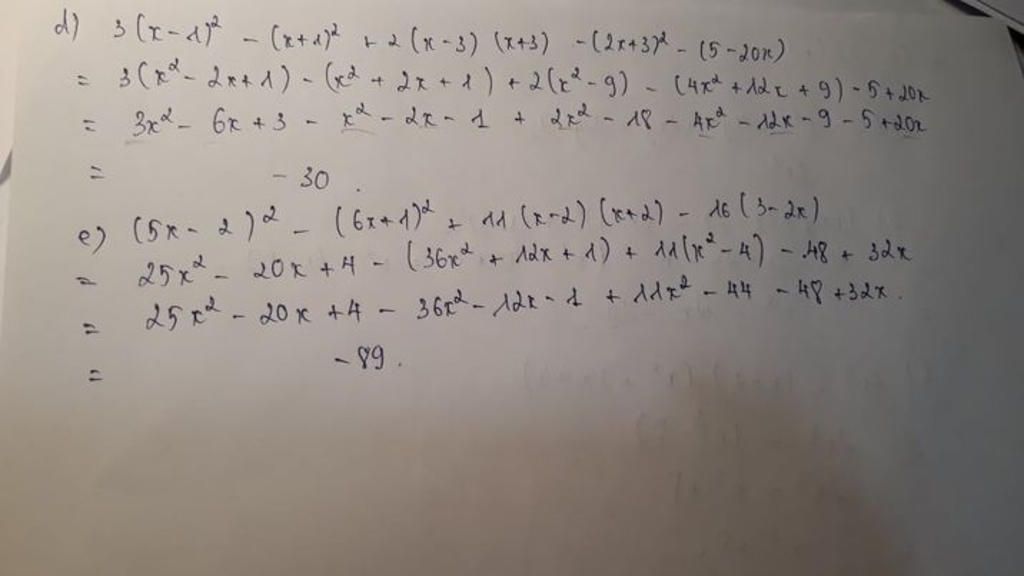 d) 3(x-1)² - (x+1)² + 2(x-3)(x+3) - (2x+3)² - (5-20x)
= 3(x² - 2x+1) - (x² + 2x + 1) + 2(x² - 9) - (4x² + 12x + 9) - 5 + 20x
= 3x² - 6x + 3 - x² - 2x - 1 + 2x² - 18 - 4x² - 12x - 9 - 5 + 20x
= - 30.
e) (5x - 2)² - (6x+1)² + 11(x-2)(x+2) - 16(3-2x)
= 25x² - 20x + 4 - (36x² + 12x + 1) + 11(x² - 4) - 48 + 32x
= 25x² - 20x + 4 - 36x² - 12x - 1 + 11x² - 44 - 48 + 32x.
= - 89.